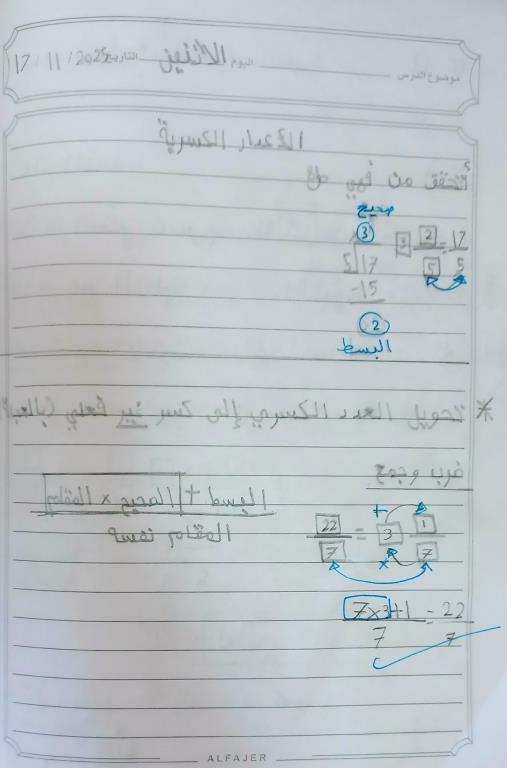 موضوع الدرس اليوم الاثنين التاريخ 17/11/2025
الأعداد الكسرية
أتحقق من فهمي ص
صحيح
3
17/5 = 3 2/5
5 17
-15
2
البسط
* تحويل العدد الكسري إلى كسر غير فعلي
ضرب وجمع
البسط + الصحيح × المقام
المقام نفسه
22/7 = 3 1/7
+
×
7×3+1 = 22
7 7
ALFAJER